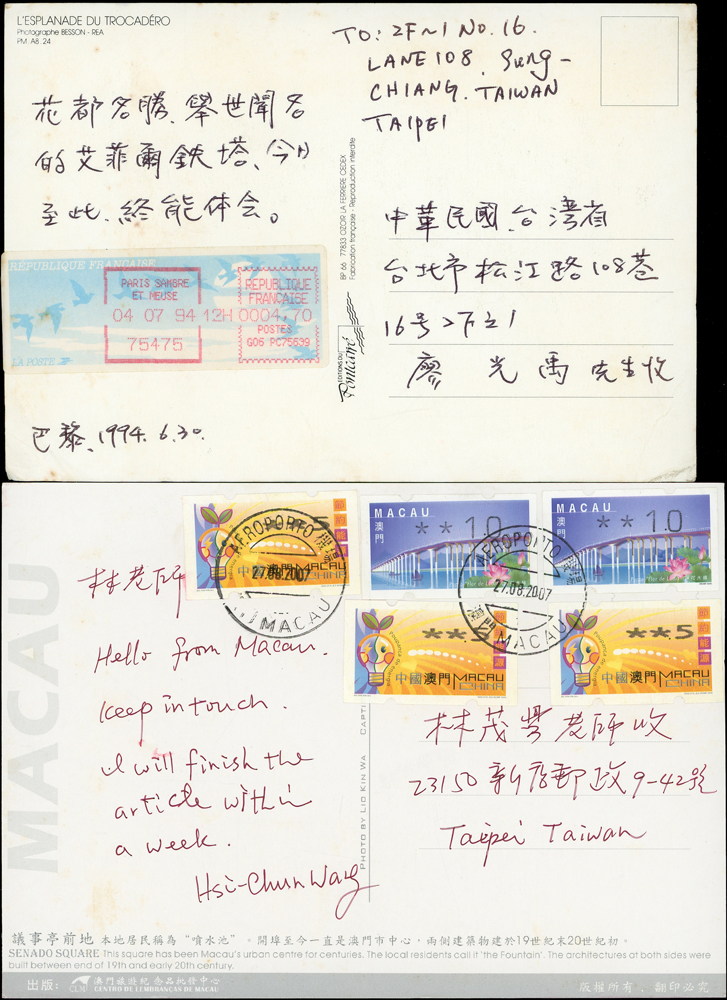 L'ESPLANADE DU TROCADÉRO
Photographe BESSON - REA
PM A8 24
花都名勝、舉世聞名
的艾菲爾鉄塔、今日
至此、終能体会。
RÉPUBLIQUE FRANÇAISE
LA POSTE
PARIS SAMBRE
ET MEUSE
04 07 94 12H
75475
REPUBLIQUE
FRANCAISE
0004,70
POSTES
G06 PC75639
巴黎、1994. 6. 30.
BP 66 77833 OZOIR LA FERRIERE CEDEX
Fabrication française - Reproduction interdite
EDITIONS DU
TO: 2F~1 NO. 16.
LANE 108, Sung-
CHIANG. TAIWAN
TAIPEI
中華民國、台灣省
台北市松江路108巷
16号2F之1
廖光禹先生收
MACAU
林老師
Hello from Macau.
Keep in touch.
I will finish the
article within
a week.
Hsi-Chun Wang
節約能源
中國澳門 MACAU
CHINA
AEROPORTO 機場
27.08.2007
澳門 MACAU
MACAU
澳門
**10
MACAU
澳門
**10
AEROPORTO 機場
27.08.2007
澳門 MACAU
**5
節約能源
中國澳門 MACAU
CHINA
**5
節約能源
中國澳門 MACAU
CHINA
PHOTO BY LIO KIN WA
林茂豐老師收
23150新店郵政9-42號
Taipei Taiwan
議事亭前地 本地居民稱為“噴水池”。開埠至今一直是澳門市中心，兩側建築物建於19世紀末20世紀初。
SENADO SQUARE This square has been Macau's urban centre for centuries. The local residents call it 'the Fountain'. The architectures at both sides were
built between end of 19th and early 20th century.
出版：
CLM
澳門旅遊紀念品批發中心
CENTRO DE LEMBRANCAS DE MACAU
版權所有．翻印必究